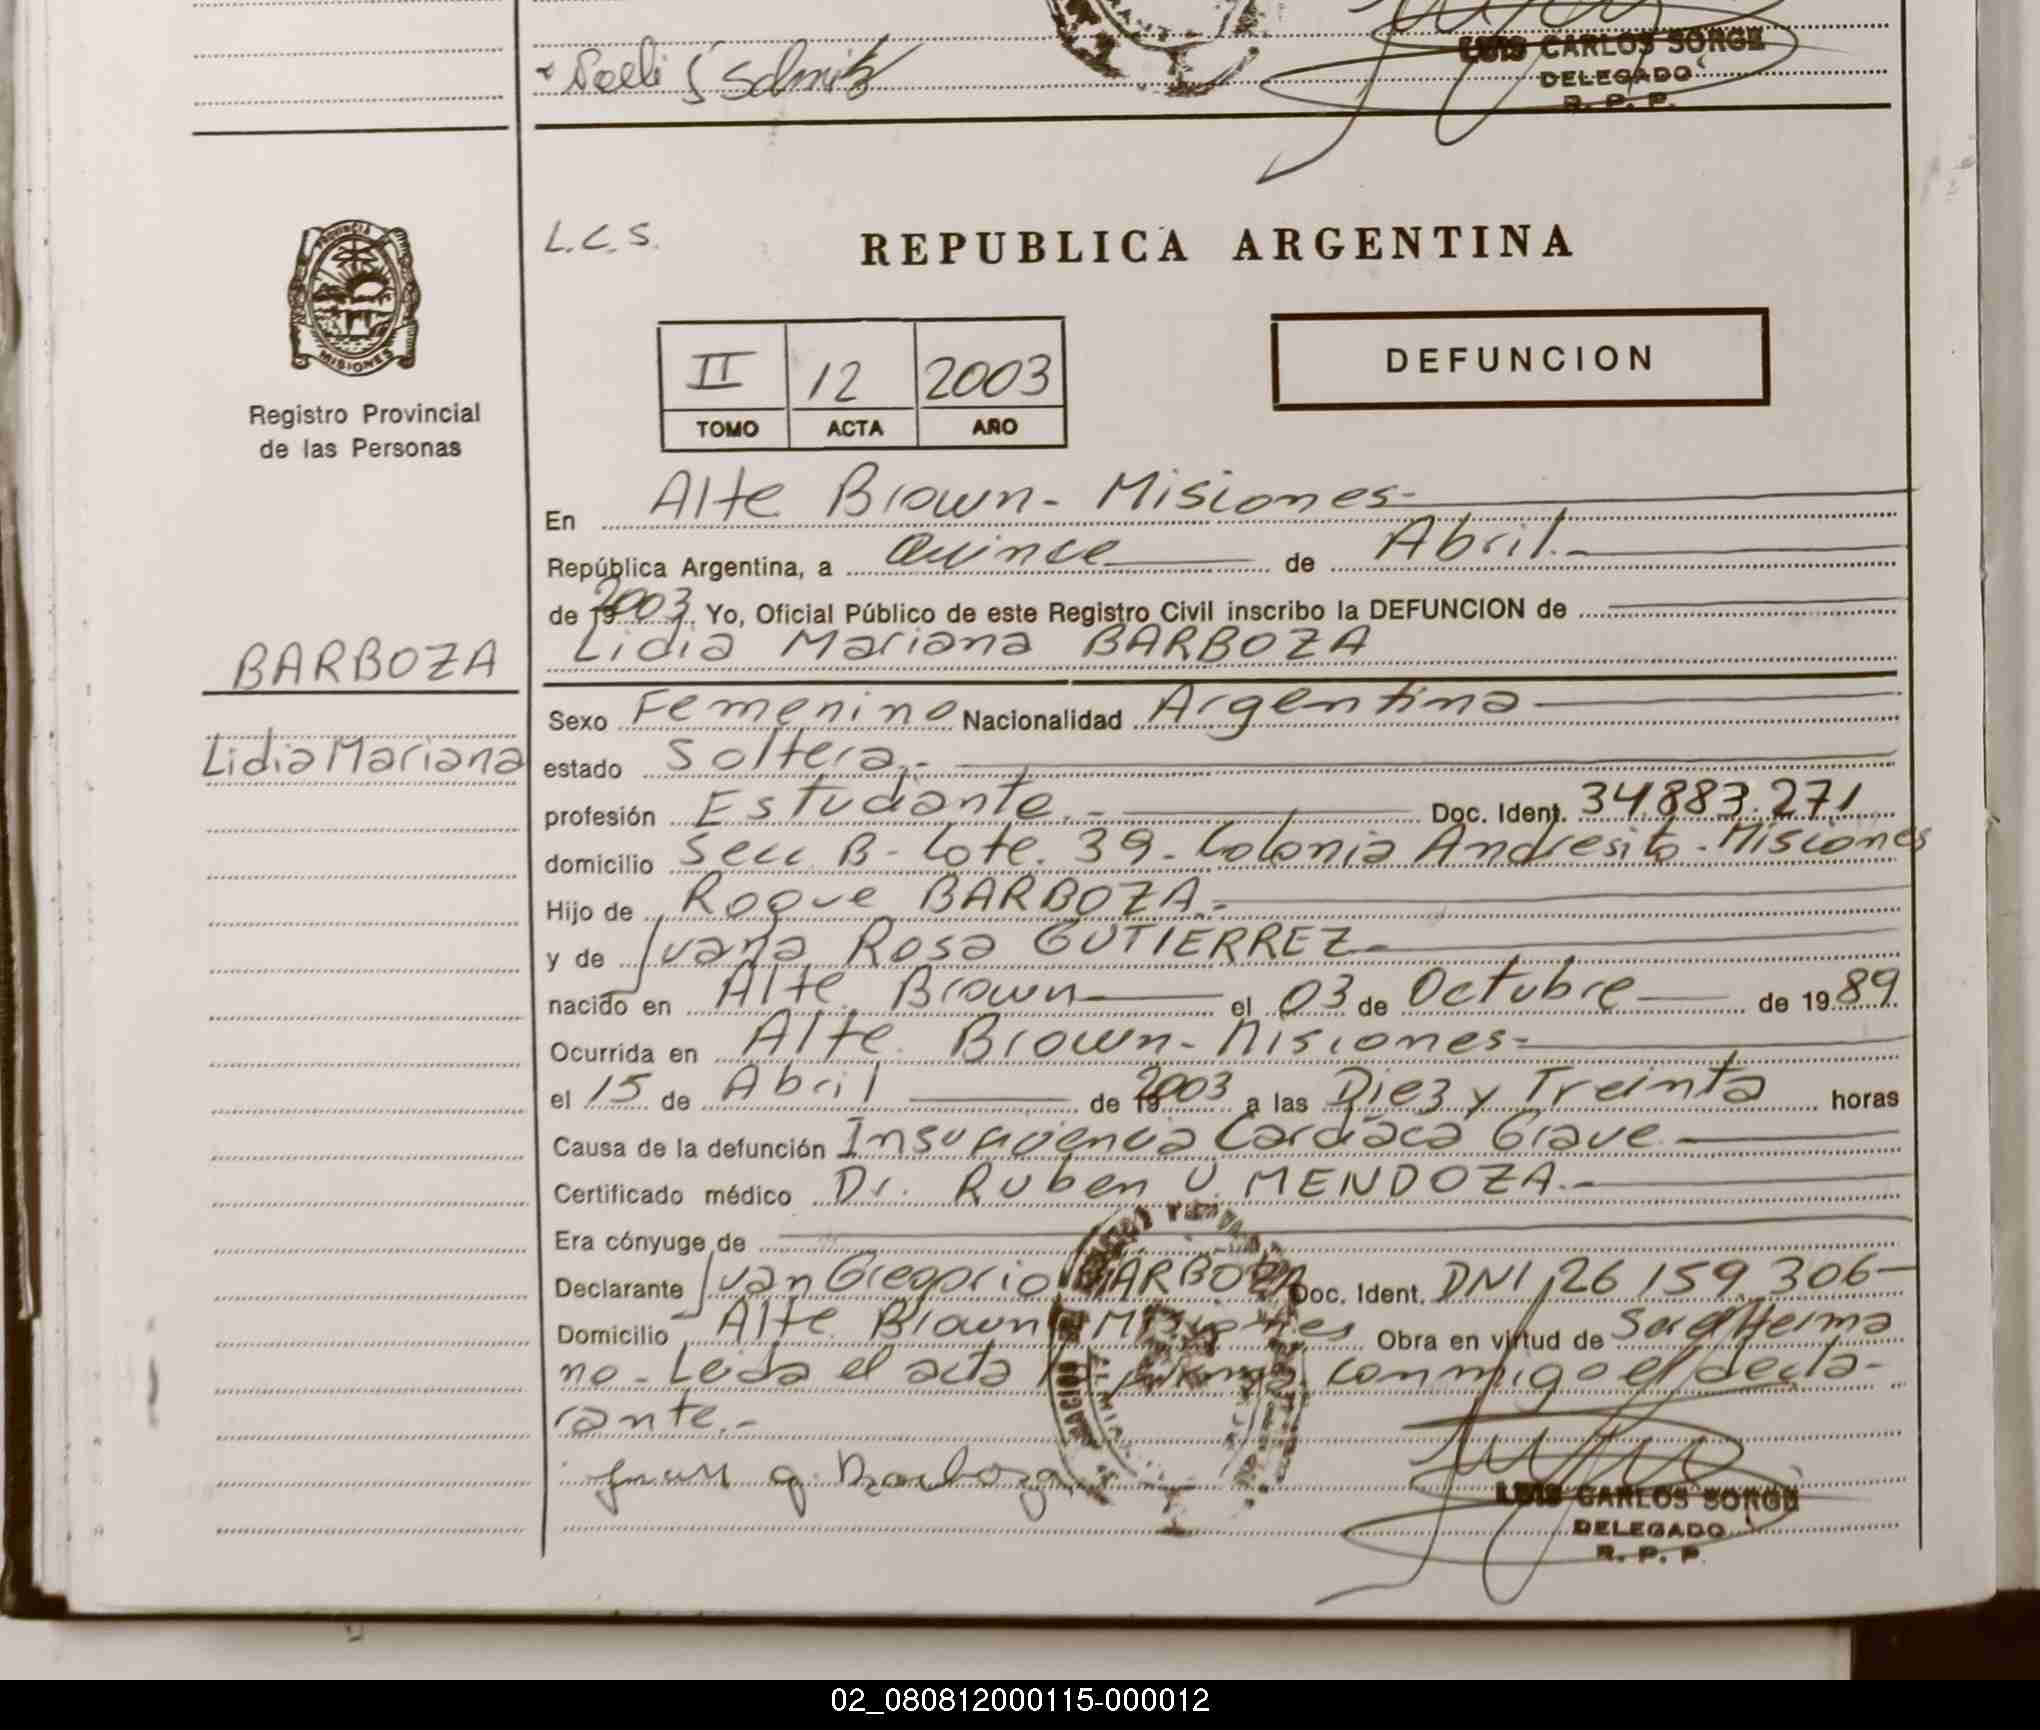 LUIS CARLOS SORGE
DELEGADO
R. P. P.
PROVINCIA DE
MISIONES
Registro Provincial
de las Personas
BARBOZA
Lidia Mariana
L.C.S.
REPUBLICA ARGENTINA
II 12 2003
TOMO ACTA AÑO
DEFUNCION
En Alte Brown - Misiones-
República Argentina, a Quince de Abril.-
de 19 2003 Yo, Oficial Público de este Registro Civil inscribo la DEFUNCION de
Lidia Mariana BARBOZA
Sexo Femenino Nacionalidad Argentina
estado Soltera.-
profesión Estudiante.- Doc. Ident. 34.883.271
domicilio Secc. B- Lote. 39- Colonia Andresito - Misiones
Hijo de Roque BARBOZA.-
y de Juana Rosa GUTIERREZ-
nacido en Alte. Brown el 03 de Octubre de 1989
Ocurrida en Alte. Brown- Misiones-
el 15 de Abril de 19 2003 a las Diez y Treinta horas
Causa de la defunción Insuficiencia Cardiaca Grave.
Certificado médico Dr. Ruben U. MENDOZA.-
Era cónyuge de
Declarante Juan Gregorio BARBOZA Doc. Ident. DNI 26.159.306-
Domicilio Alte. Brown Misiones Obra en virtud de Ser el Herma
no - Leida el acta la firma conmigo el decla-
rante.-
Juan G. Barboza
LUIS CARLOS SORGE
DELEGADO
R. P. P.
02_080812000115-000012